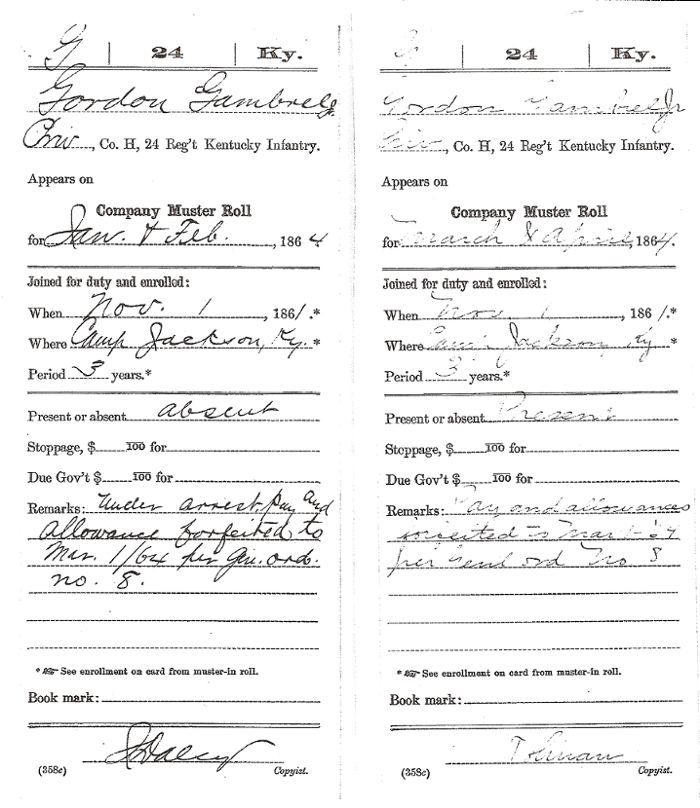 G | 24 | Ky.
Gordon Gambrel Jr
Priv, Co. H, 24 Reg't Kentucky Infantry.
Appears on
Company Muster Roll
for Jan. & Feb., 1864
Joined for duty and enrolled:
When Nov. 1, 1861.*
Where Camp Jackson, Ky. *
Period 3 years.*
Present or absent absent
Stoppage, $ 100 for
Due Gov't $ 100 for
Remarks: Under arrest, Pay and
allowance forfeited to
Mar. 1/64 per Gen. ord.
no. 8.
* ☞ See enrollment on card from muster-in roll.
Book mark:
(358c) Copyist.
G | 24 | Ky.
Gordon Gambrel Jr
Priv, Co. H, 24 Reg't Kentucky Infantry.
Appears on
Company Muster Roll
for March & April, 1864.
Joined for duty and enrolled:
When Nov. 1, 1861.*
Where Camp Jackson, Ky *
Period 3 years.*
Present or absent Present
Stoppage, $ 100 for
Due Gov't $ 100 for
Remarks: Pay and allowances
to Mar 1-64
per Genl ord No 8
* ☞ See enrollment on card from muster-in roll.
Book mark:
(358c) Copyist.